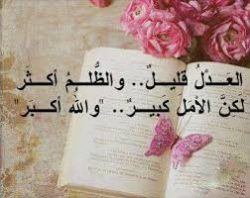 العَدْلُ قَلِيلٌ.. والظُّلْمُ أَكْثَر
لَكِنَّ الأَمَلَ كَبِيرٌ.. "واللهُ أَكْبَر"